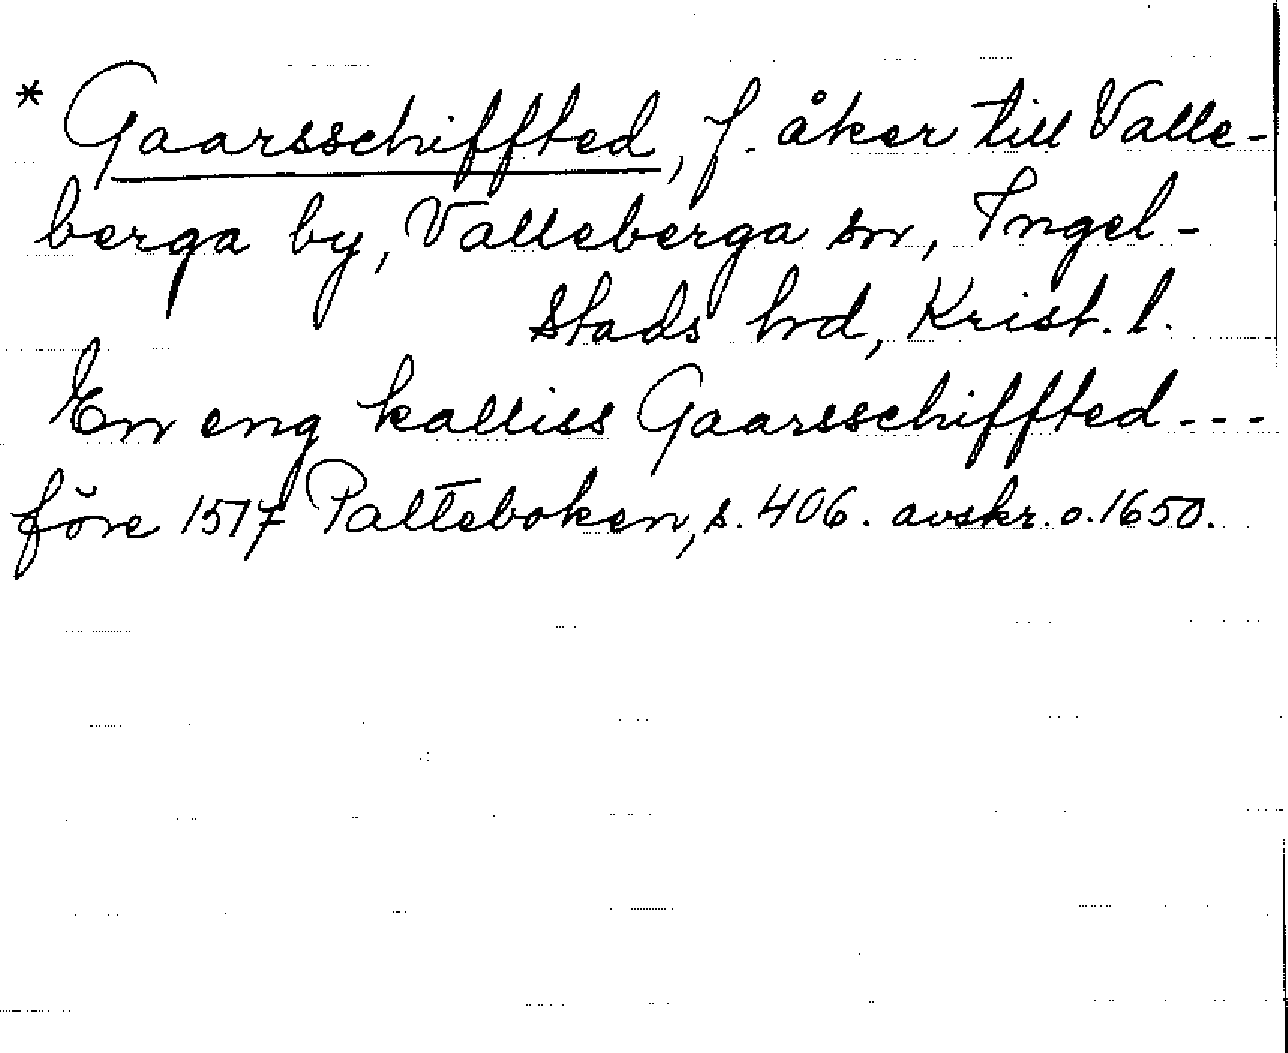 * Gaarsschiffted, f. åker till Valle-
berga by, Valleberga sn, Ingel-
stads hrd, Krist. l.
En eng kalliss Gaarsschiffted ---
före 1517 Palteboken, s. 406. avskr. o. 1650.